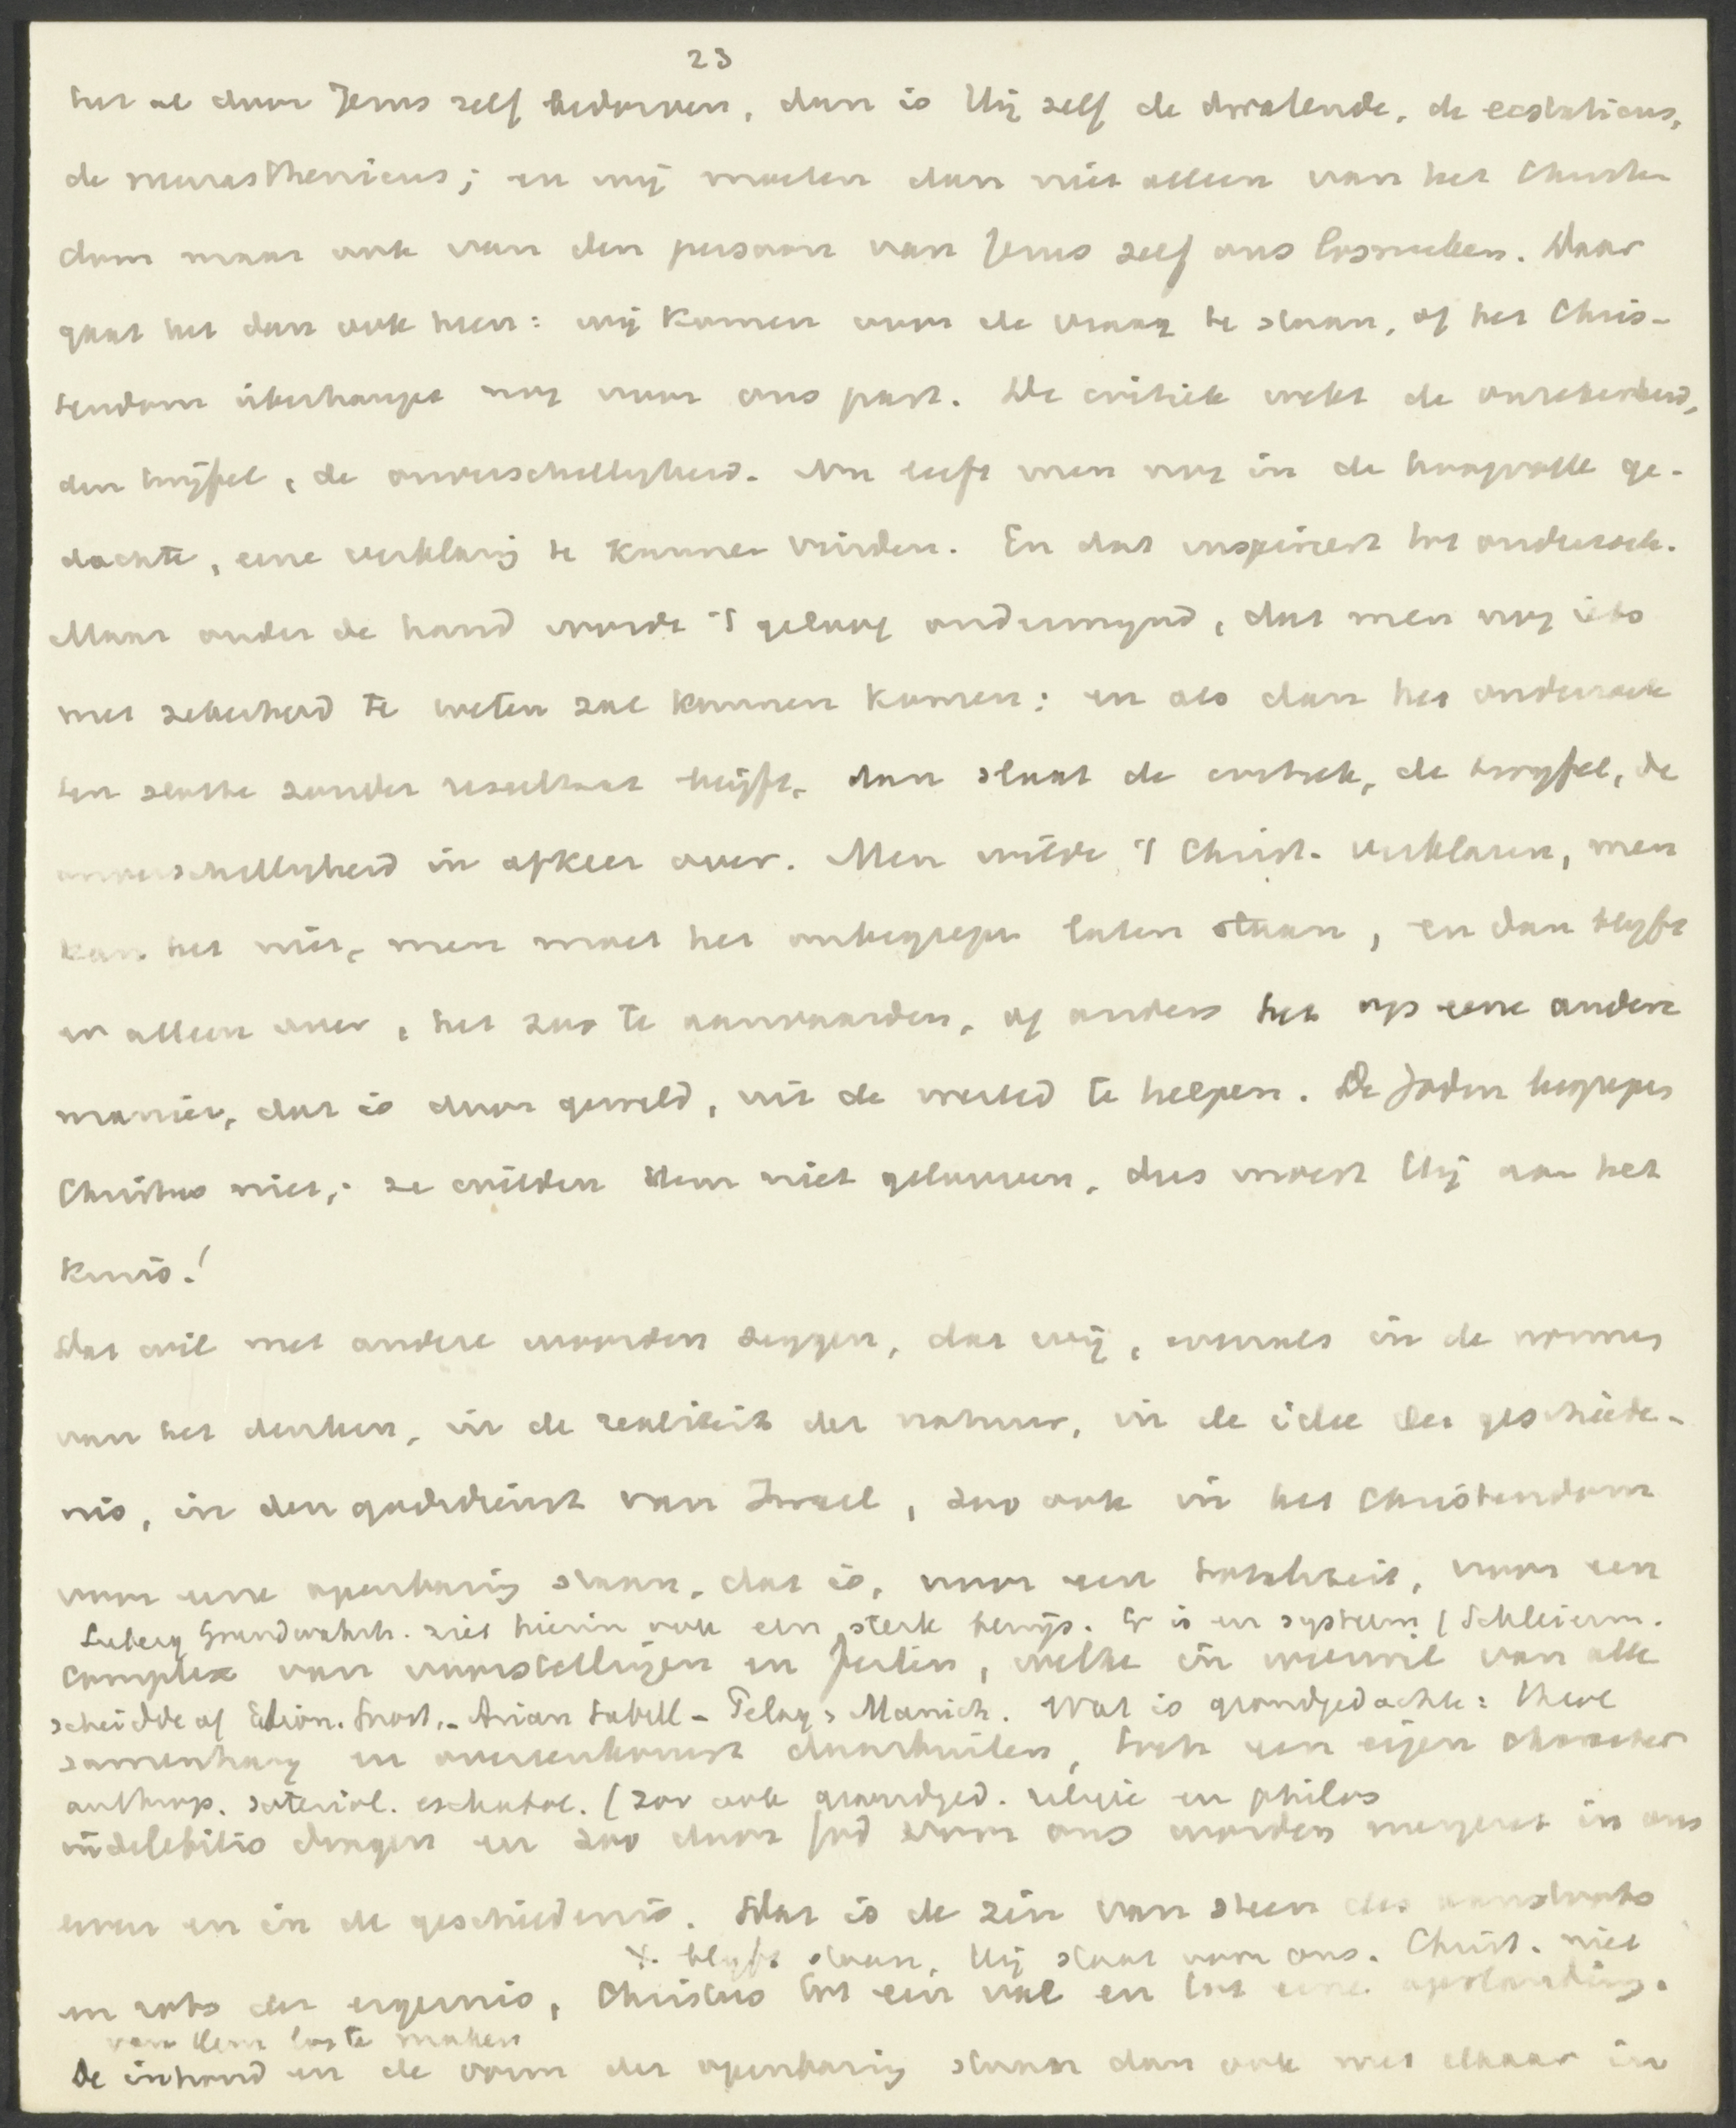 23
het al door Jezus zelf bedorven, dan is Hij zelf de dwalende, de ecstaticus,
de neurasthenicus; en wij moeten dan niet alleen van het Christen
dom maar ook van den persoon van Jezus zelf ons losmaken. Daar
gaat het dan ook heen: wij komen voor de vraag te staan, of het Chris-
tendom überhaupt nog voor ons past. De critiek wekt de onzekerheid,
den twijfel, de onverschilligheid. Nu leeft men nog in de hoopvolle ge-
dachte, eene verklaring te kunnen vinden. En dat inspireert het onderzoek.
Maar onder de hand wordt 't geloof ondermijnd, dat men nog iets
met zekerheid te weten zal kunnen komen: en als dan het onderzoek
ten slotte zonder resultaat blijft, dan slaat de critiek, de twijfel, de
onverschilligheid in afkeer over. Men wilde 't Christ. verklaren, men
kan het niet, men moet het onbegrepen laten staan, en dan blijft
er alleen over, het zoo te aanvaarden, of anders het op eene andere
manier, dat is door geweld, uit de wereld te helpen. De Joden begrepen
Christus niet; ze wilden Hem niet gelooven, dus moest Hij aan het
kruis!
Dat wil met andere woorden zeggen, dat wij, evenals in de normen
van het denken, in de realiteit der natuur, in de idee der geschiede-
nis, in den godsdienst van Israel, zoo ook in het Christendom
voor eene openbaring staan, dat is, voor een totaliteit, voor een
Grundwahrh. ziet hierin ook een sterk bewijs. Er is een systeem (Schleierm.
complex van voorstellingen en feiten, welke in weerwil van alle
scheidde af Ebion. Gnost. - Arian Sabell - Pelag > Manich. Wat is grondgedachte: theol
samenhang en overeenkomst daarbuiten, toch een eigen character
anthrop. soteriol. eschatol. (zoo ook grondged. religie en philos
indelebilis dragen en zoo door God voor ons worden neergezet in ons
leven en in de geschiedenis. Dat is de zin van steen des aanstoots
x. blijft staan, Hij staat voor ons. Christ. niet
en rots der ergernis, Christus tot een val en tot eene opstanding.
van Hem los te maken
De inhoud en de vorm der openbaring staan dan ook met elkaar in